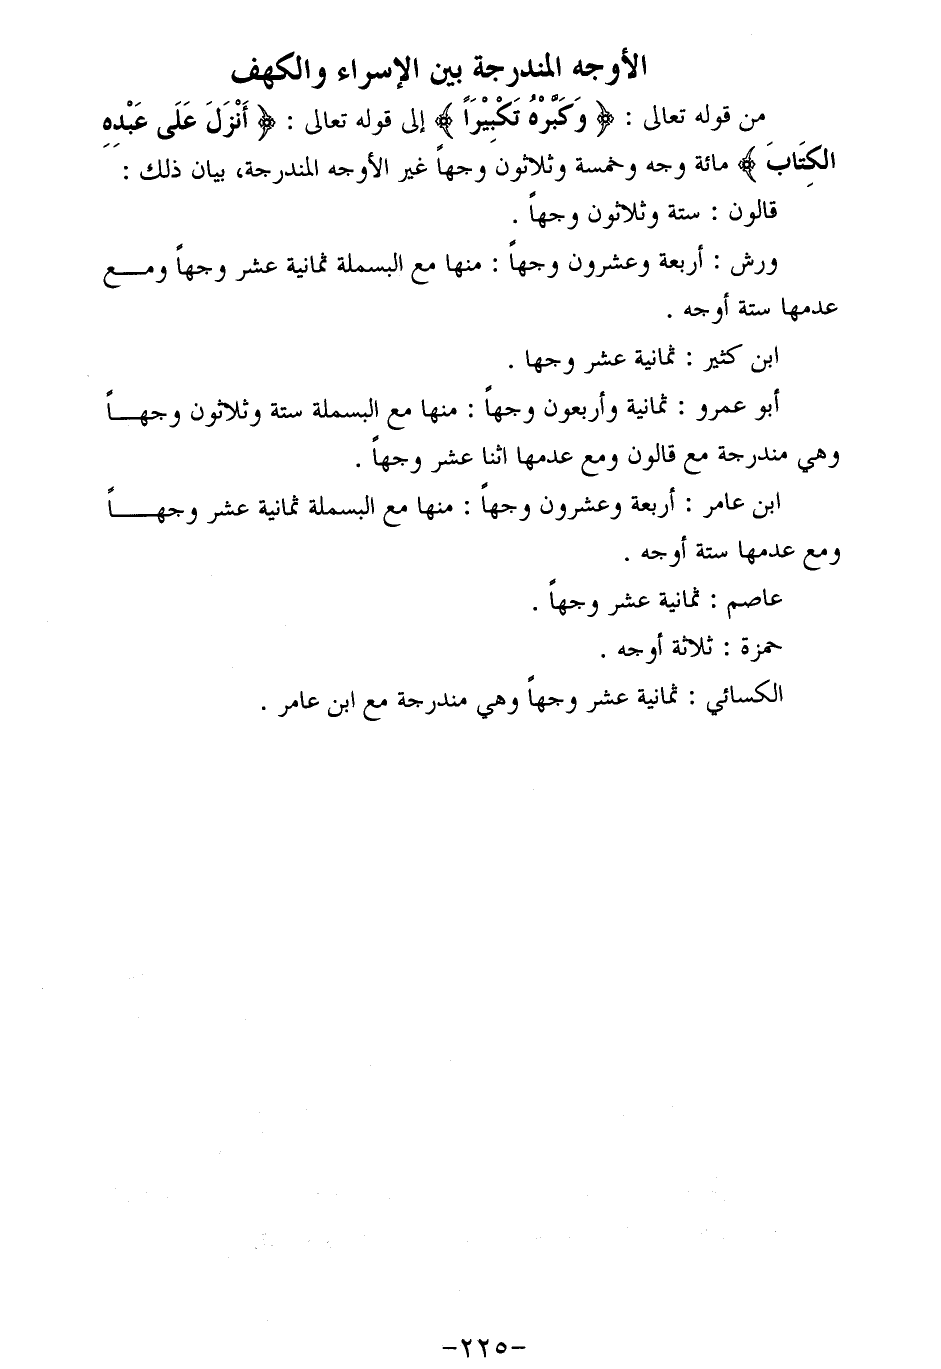 الأوجه المندرجة بين الإسراء والكهف
من قوله تعالى : ﴿ وَكَبِّرْهُ تَكْبِيْرَاً ﴾ إلى قوله تعالى : ﴿ أَنْزَلَ عَلَى عَبْدِهِ
الكِتَابَ ﴾ مائة وجه وخمسة وثلاثون وجهاً غير الأوجه المندرجة، بيان ذلك :
قالون : ستة وثلاثون وجهاً .
ورش : أربعة وعشرون وجهاً : منها مع البسملة ثمانية عشر وجهاً ومـــع
عدمها ستة أوجه .
ابن كثير : ثمانية عشر وجها .
أبو عمرو : ثمانية وأربعون وجهاً : منها مع البسملة ستة وثلاثون وجهـــاً
وهي مندرجة مع قالون ومع عدمها اثنا عشر وجهاً .
ابن عامر : أربعة وعشرون وجهاً : منها مع البسملة ثمانية عشر وجهـــاً
ومع عدمها ستة أوجه .
عاصم : ثمانية عشر وجهاً .
حمزة : ثلاثة أوجه .
الكسائي : ثمانية عشر وجهاً وهي مندرجة مع ابن عامر .
-٢٢٥-